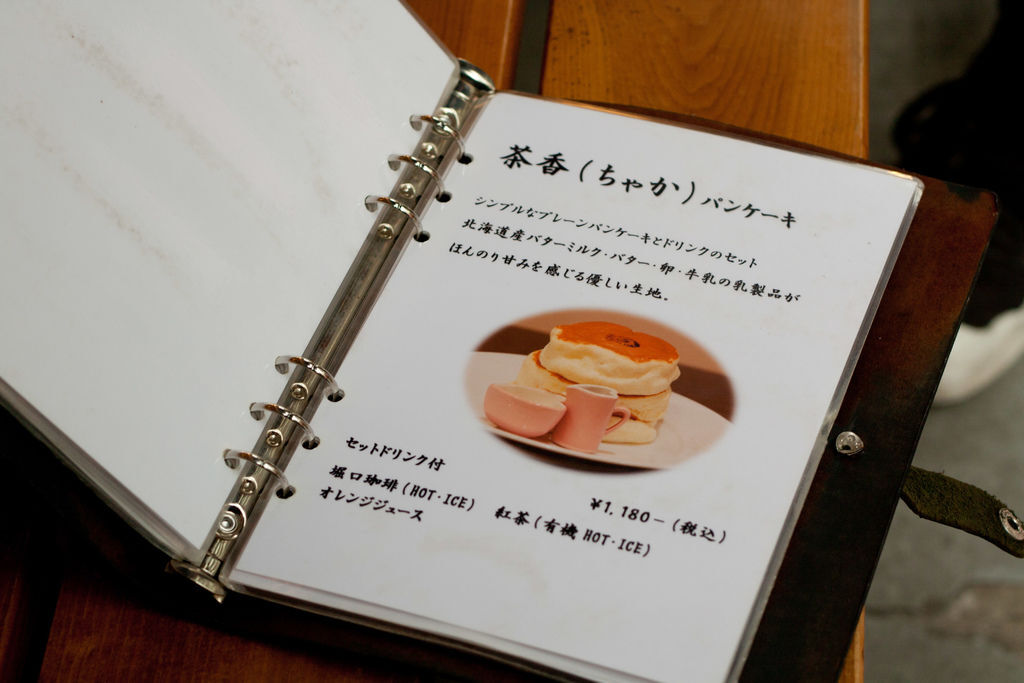 茶香(ちゃか)パンケーキ
シンプルなプレーンパンケーキとドリンクのセット
北海道産バターミルク・バター・卵・牛乳の乳製品が
ほんのり甘みを感じる優しい生地。
セットドリンク付
¥1,180-(税込)
堀口珈琲(HOT・ICE) 紅茶(有機HOT・ICE)
オレンジジュース